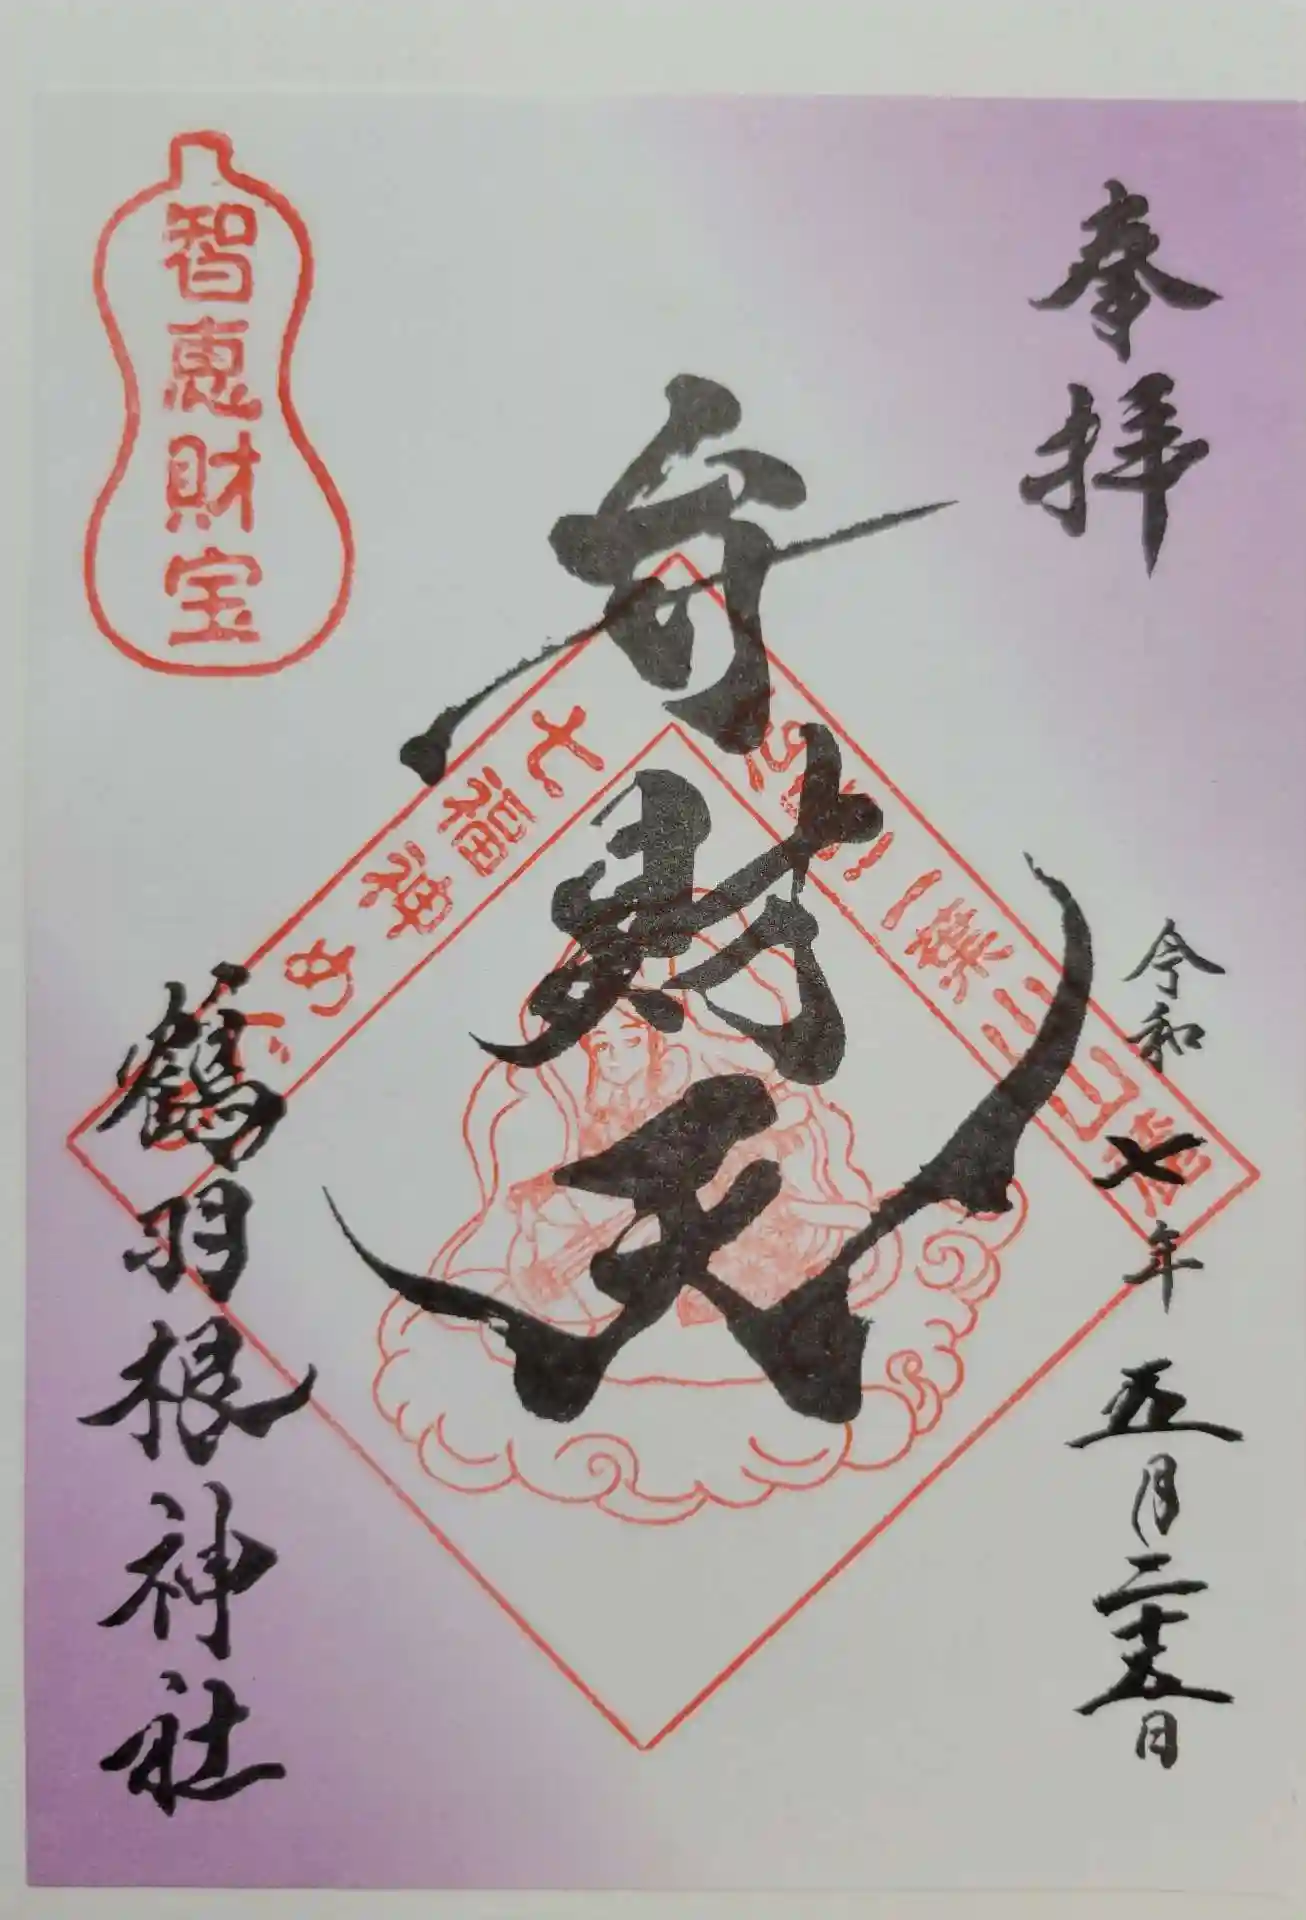 奉拝
令和七年五月二十五日
弁財天
智恵財宝
七福神めぐり
鶴羽根神社